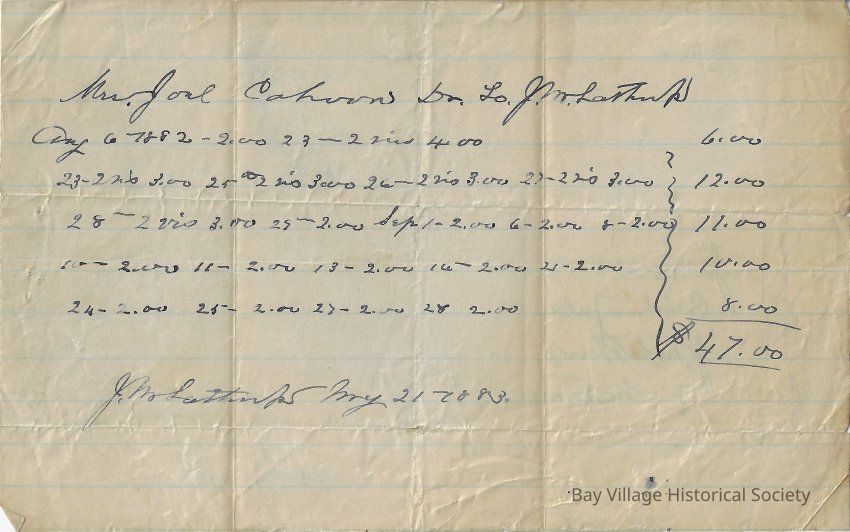 Mrs. Joel Cahoon Dr. To. J. W. Lathrop
Aug 6 - 1882 - 2.00 23 - 2 vis 4.00 6.00
23 - 2 vis 3.00 25 2 vis 3.00 26 - 2 vis 3.00 27 - 2 vis 3.00 12.00
28 - 2 vis 3.00 29 - 2.00 Sep 1 - 2.00 6 - 2.00 8 - 2.00 11.00
10 - 2.00 11 - 2.00 13 - 2.00 16 - 2.00 21 - 2.00 10.00
24 - 2.00 25 - 2.00 27 - 2.00 28 2.00 8.00
$47.00
J. W. Lathrop 21 - 1883.
Bay Village Historical Society